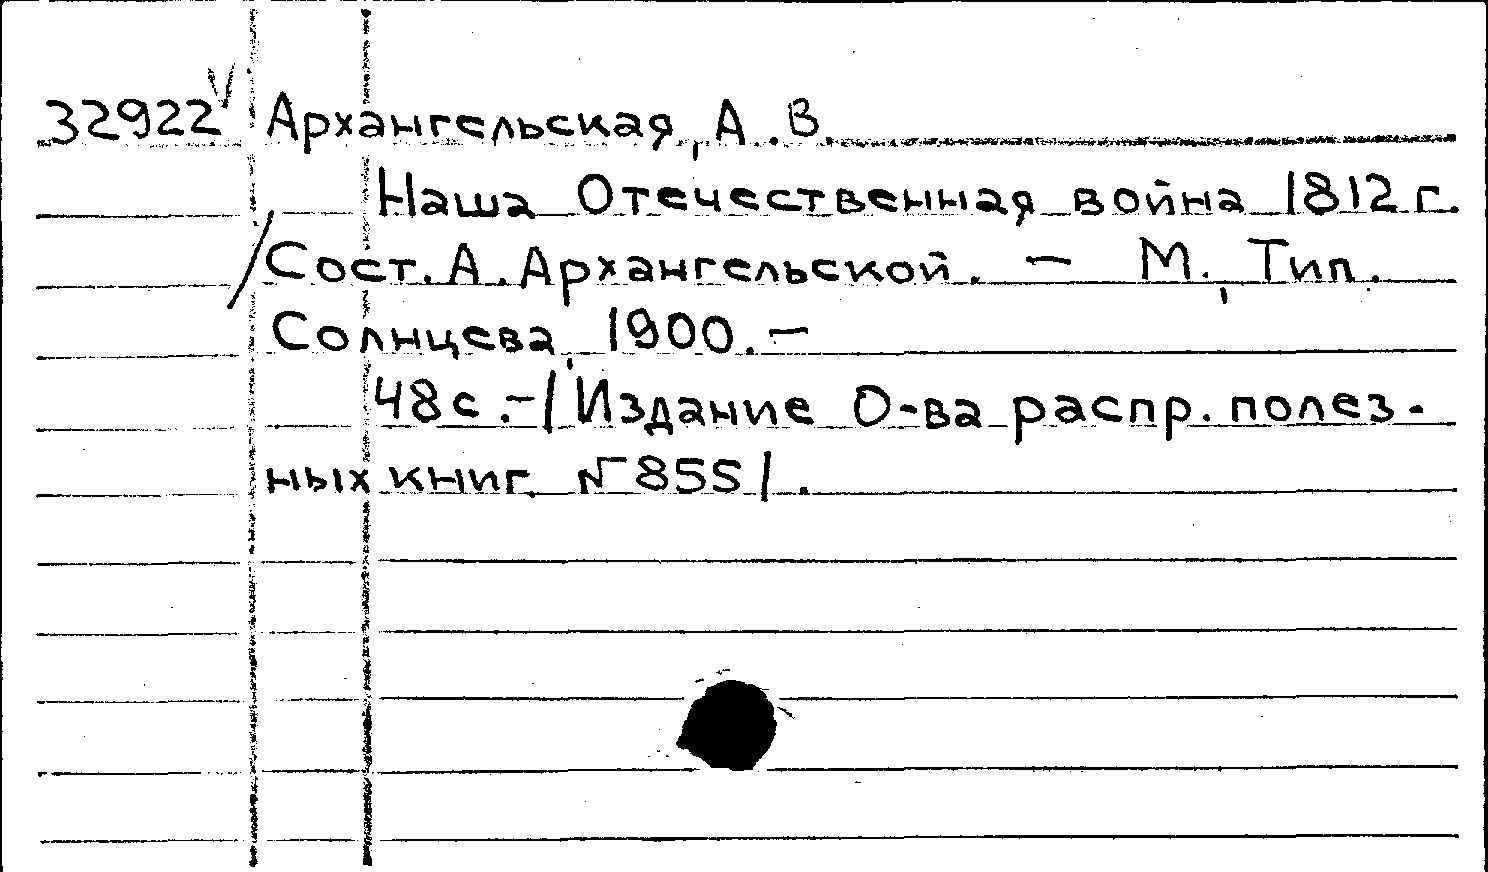 32922 V Архангельская, А.В.
Наша Отечественная война 1812 г.
/Сост. А. Архангельской. — М., Тип.
Солнцева, 1900. —
48 с. — /Издание О-ва распр. полез-
ных книг. № 855/.